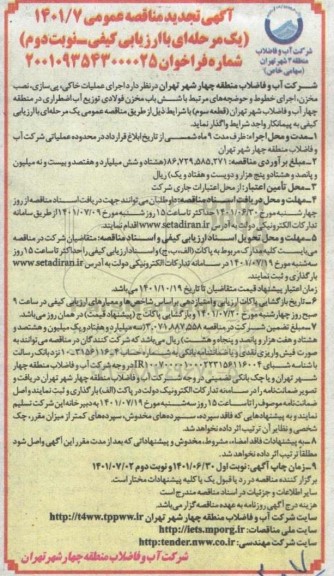 آگهی تجدید مناقصه عمومی ۱۴۰۱/۷
(یک مرحله‌ای با ارزیابی کیفی_نوبت دوم)
شماره فراخوان ۲۰۰۱۰۹۳۵۴۳۰۰۰۰۲۵
شرکت آب و فاضلاب
منطقه ۴ شهر تهران
(سهامی خاص)
شرکت آب و فاضلاب منطقه چهار شهر تهران در نظر دارد اجرای عملیات خاکی، پی‌سازی، نصب
مخزن، اجرای خطوط و حوضچه‌های مرتبط با شش باب مخزن فولادی توزیع آب اضطراری در منطقه
چهار آب و فاضلاب شهر تهران (قطعه سوم) با شرایط ذیل از طریق مناقصه عمومی یک مرحله‌ای با ارزیابی
کیفی به پیمانکار واجد شرایط واگذار نماید.
۱-مدت و محل اجراء: ظرف مدت ۹ ماه شمسی از تاریخ ابلاغ قرارداد در محدوده عملیاتی شرکت آب
و فاضلاب منطقه چهار شهر تهران
۲-مبلغ برآوردی مناقصه: ۸۶,۷۲۹,۵۸۵,۲۷۱ (هشتاد و شش میلیارد و هفتصد و بیست و نه میلیون
و پانصد و هشتاد و پنج هزار و دویست و هفتاد و یک) ریال
۳-محل تأمین اعتبار: از محل اعتبارات جاری شرکت
۴-مهلت و محل دریافت اسناد مناقصه: داوطلبان می‌توانند جهت دریافت اسناد مناقصه از روز
چهارشنبه مورخ ۱۴۰۱/۰۶/۳۰ حداکثر تا ساعت ۱۵ روز شنبه مورخ ۱۴۰۱/۰۷/۰۹ از طریق سامانه
تدارکات الکترونیکی دولت به آدرس www.setadiran.ir اقدام نمایند.
۵-مهلت و محل تحویل اسناد ارزیابی کیفی و اسناد مناقصه: متقاضیان شرکت در مناقصه
می‌بایست کلیه مدارک مربوط به پاکات (الف،ب،ج) و اسناد ارزیابی کیفی را حداکثر تا ساعت ۱۵ روز
سه شنبه مورخ ۱۴۰۱/۰۷/۱۹ در سامانه تدارکات الکترونیکی دولت به آدرس www.setadiran.ir
بارگذاری و ثبت نمایند.
زمان اعتبار پیشنهاد قیمت متقاضیان تا تاریخ ۱۴۰۱/۱۰/۱۹ می‌باشد.
۶-تاریخ بازگشایی پاکات ارزیابی و امتیازدهی بر اساس شاخص‌ها و معیارهای ارزیابی کیفی در ساعت ۹
صبح روز چهارشنبه مورخ ۱۴۰۱/۰۷/۲۰ و بازگشایی پاکات ج (پیشنهاد قیمت) در همان روز می‌باشد.
۷-مبلغ تضمین شرکت در مناقصه ۳,۰۷۱,۸۸۷,۵۵۸ (سه میلیارد و هفتاد و یک میلیون و هشتصد و
هشتاد و هفت هزار و پانصد و پنجاه و هشت) ریال می‌باشد که شرکت کنندگان در مناقصه می‌توانند به
صورت فیش واریزی نقدی و یا ضمانتنامه بانکی به شماره حساب نزد بانک رسالت
با شناسه شبای در وجه شرکت آب و فاضلاب منطقه چهار
شهر تهران و یا چک بانکی تضمینی در وجه شرکت آب و فاضلاب منطقه چهار شهر تهران دریافت و
تصویر ضمانتنامه را در سامانه تدارکات الکترونیک دولت در پاکت (الف) بارگذاری و ثبت نمایند و اصل
ضمانتنامه موصوف را تا ساعت ۱۵ روز سه‌شنبه مورخ ۱۴۰۱/۰۷/۱۹ به دبیرخانه این شرکت تسلیم
نمایند و به پیشنهادهایی که فاقد سپرده، سپرده‌های مخدوش، سپرده‌های کمتر از میزان مقرر، چک
شخصی و نظایر آن ترتیب اثر داده نخواهد شد.
۸-به پیشنهادات فاقد امضاء، مشروط، مخدوش و پیشنهاداتی که بعد از مدت مقرر این آگهی واصل شود
مطلقاً ترتیب اثر داده نخواهد شد.
۹-زمان چاپ آگهی: نوبت اول ۱۴۰۱/۰۶/۳۰ و نوبت دوم ۱۴۰۱/۰۷/۰۲
برگزار کننده مناقصه در رد یا قبول یک یا کلیه پیشنهادات مختار است.
سایر اطلاعات و جزئیات در اسناد مناقصه مندرج است
هزینه درج آگهی روزنامه به عهده مناقصه گزار می‌باشد.
سایت شرکت آب و فاضلاب منطقه چهار شهر تهران http://t4ww.tppww.ir
سایت ملی مناقصات: http://iets.mporg.ir
سایت شرکت مهندسی: http:tender.nww.co.ir
شرکت آب و فاضلاب منطقه چهار شهر تهران